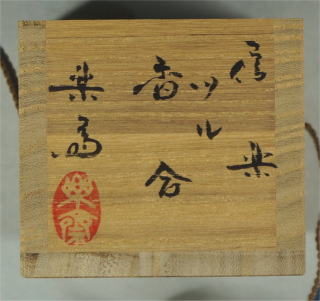 信楽
ツル
香合
楽斎